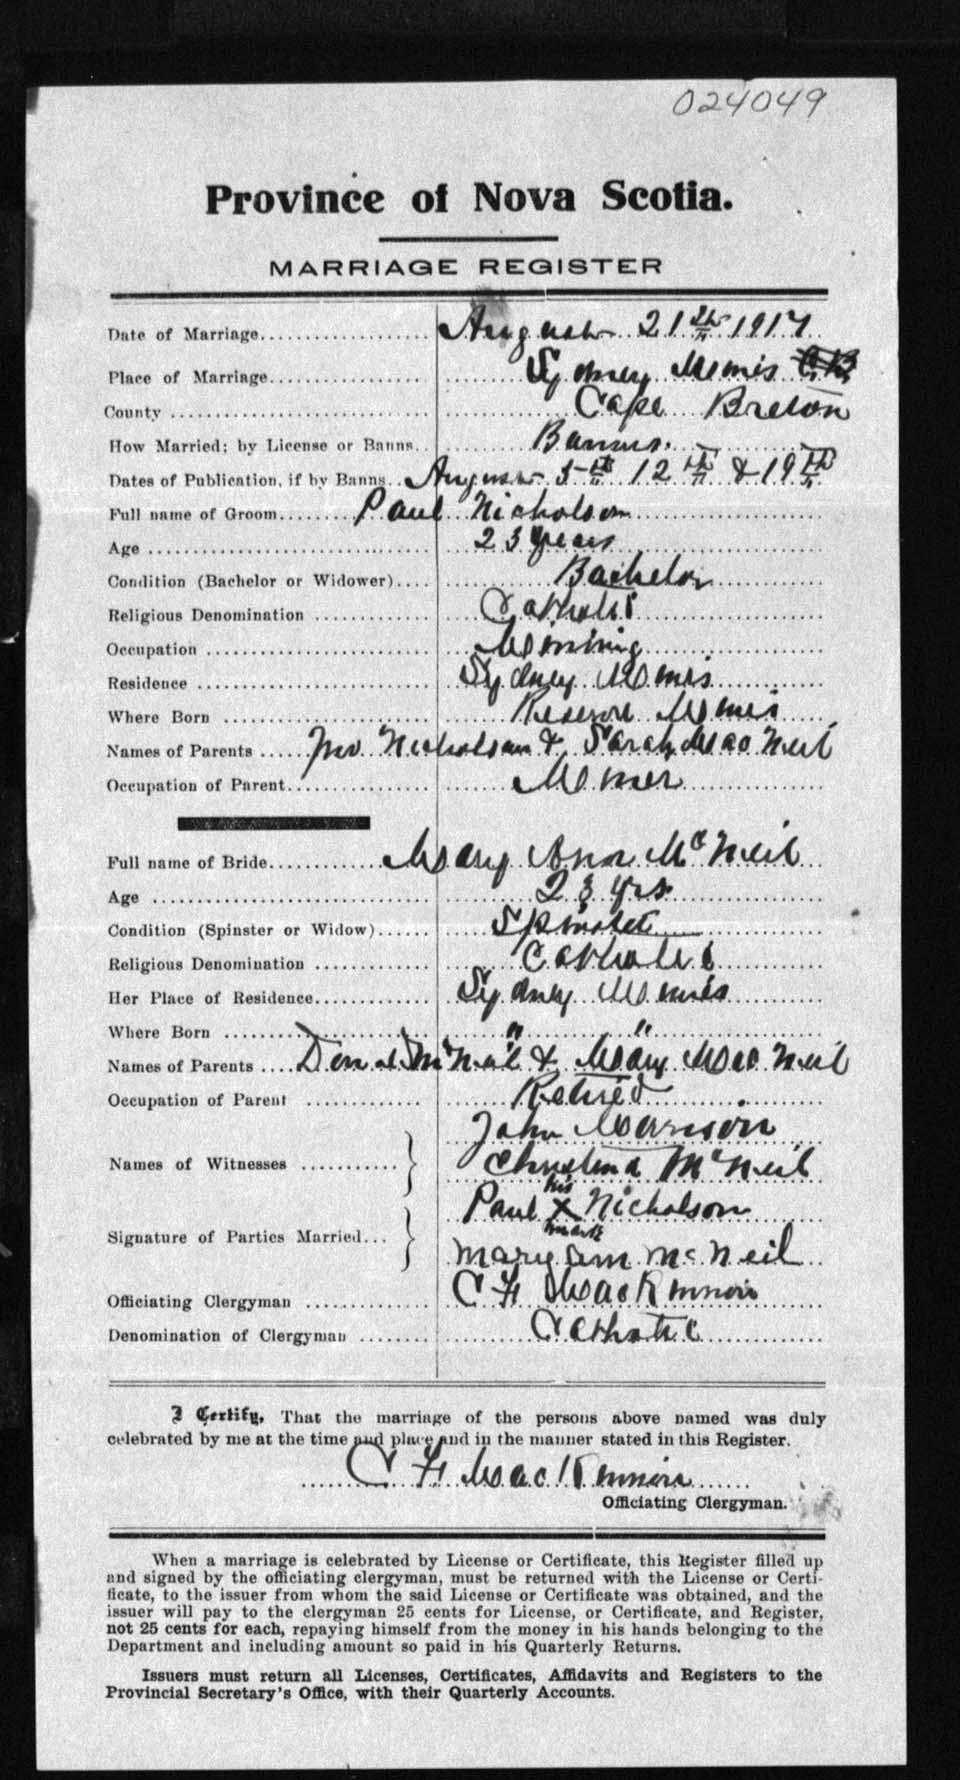 024049
Province of Nova Scotia.
MARRIAGE REGISTER
Date of Marriage August 21st 1917
Place of Marriage Sydney Mines C.B.
County Cape Breton
How Married; by License or Banns Banns.
Dates of Publication, if by Banns August 5th 12th & 19th
Full name of Groom Paul Nicholson
Age 23 years
Condition (Bachelor or Widower) Bachelor
Religious Denomination Catholic
Occupation Mining
Residence Sydney Mines
Where Born Reserve Mines
Names of Parents Jno Nicholson & Sarah MacNeil
Occupation of Parent Miner
Full name of Bride Mary Ann McNeil
Age 23 yrs
Condition (Spinster or Widow) Spinster
Religious Denomination Catholic
Her Place of Residence Sydney Mines
Where Born " "
Names of Parents McNeil & Mary MacNeil
Occupation of Parent Retired
John
Names of Witnesses Christina McNeil
Paul his X mark Nicholson
Signature of Parties Married
Mary ann McNeil
Officiating Clergyman C F MacKinnon
Denomination of Clergyman Catholic
I Certify, That the marriage of the persons above named was duly
celebrated by me at the time and place and in the manner stated in this Register.
C F MacKinnon
Officiating Clergyman.
When a marriage is celebrated by License or Certificate, this Register filled up
and signed by the officiating clergyman, must be returned with the License or Certi-
ficate, to the issuer from whom the said License or Certificate was obtained, and the
issuer will pay to the clergyman 25 cents for License, or Certificate, and Register,
not 25 cents for each, repaying himself from the money in his hands belonging to the
Department and including amount so paid in his Quarterly Returns.
Issuers must return all Licenses, Certificates, Affidavits and Registers to the
Provincial Secretary's Office, with their Quarterly Accounts.